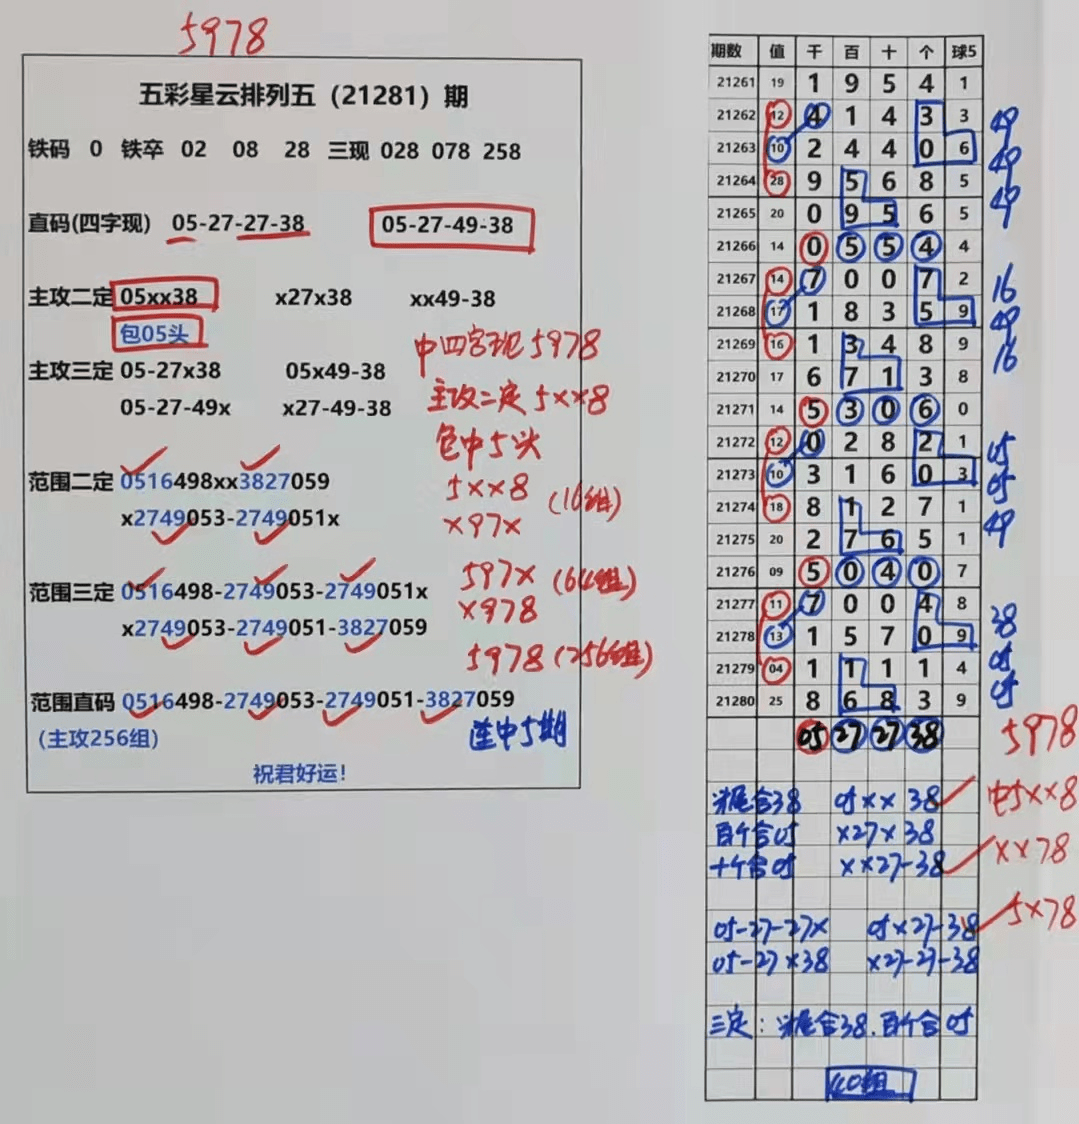 5978
五彩星云排列五（21281）期
铁码 0 铁卒 02 08 28 三现 028 078 258
直码(四字现) 05-27-27-38 05-27-49-38
主攻二定 05xx38 x27x38 xx49-38
包05头
中四字现5978
主攻三定 05-27x38 05x49-38
主攻二定5xx8
05-27-49x x27-49-38
包中5头
范围二定 0516498xx3827059
5xx8 (16组)
x2749053-2749051x
x97x
范围三定 0516498-2749053-2749051x
597x (64组)
x2749053-2749051-3827059
x978
5978(256组)
范围直码 0516498-2749053-2749051-3827059
(主攻256组)
连中5期
祝君好运！
期数 值 千 百 十 个 球5
21261 19 1 9 5 4 1
21262 12 4 1 4 3 3 49
21263 10 2 4 4 0 6 49
21264 28 9 5 6 8 5 49
21265 20 0 9 5 6 5
21266 14 0 5 5 4 4
21267 14 7 0 0 7 2 16
21268 17 1 8 3 5 9 49
21269 16 1 3 4 8 9 16
21270 17 6 7 1 3 8
21271 14 5 3 0 6 0
21272 12 0 2 8 2 1 05
21273 10 3 1 6 0 3 05
21274 18 8 1 2 7 1 49
21275 20 2 7 6 5 1
21276 09 5 0 4 0 7
21277 11 7 0 0 4 8 38
21278 13 1 5 7 0 9
21279 04 1 1 1 1 4 05
21280 25 8 6 8 3 9 05
05 27 27 38 5978
头尾合38 05xx 38 中5xx8
百个合05 x27x 38
十个合05 xx27-38 xx78
05-27-27x 05x27-38 5x78
05-27x38 x27-27-38
三定：头尾合38.百个合05
40组